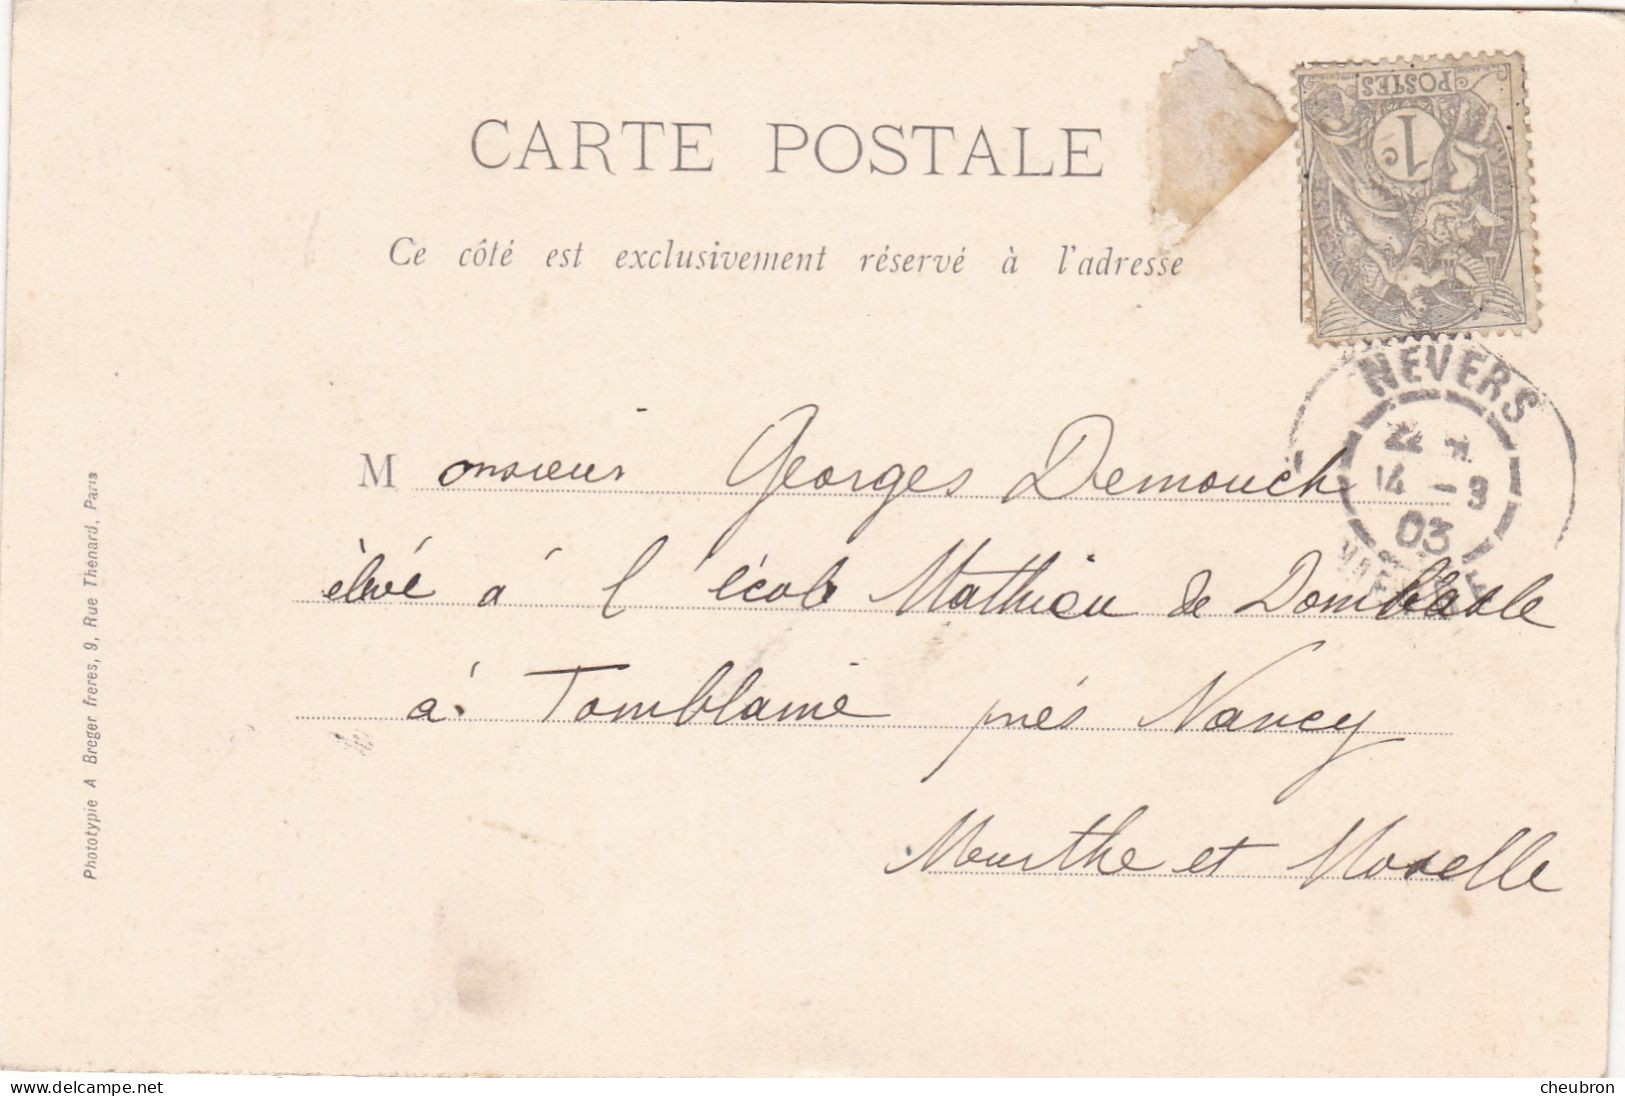 CARTE POSTALE
Ce côté est exclusivement réservé à l'adresse
POSTES
1 c
NEVERS
14 -3
03
NIEVRE
Monsieur Georges Demouch
élevé á l'écol Mathieu de Dombasle
á Tomblaine près Nancy
Meurthe et Moselle
Phototypie A Breger freres, 9, Rue Thenard, Paris
www.delcampe.net
cheubron